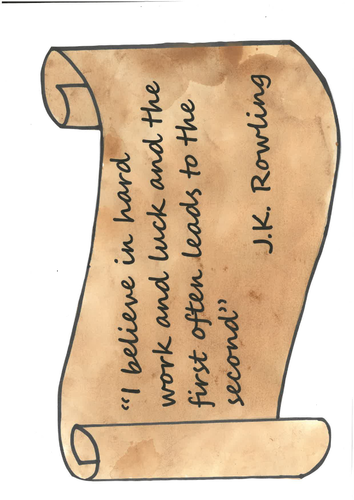 “I believe in hard
work and luck and the
first often leads to the
second”
J.K. Rowling